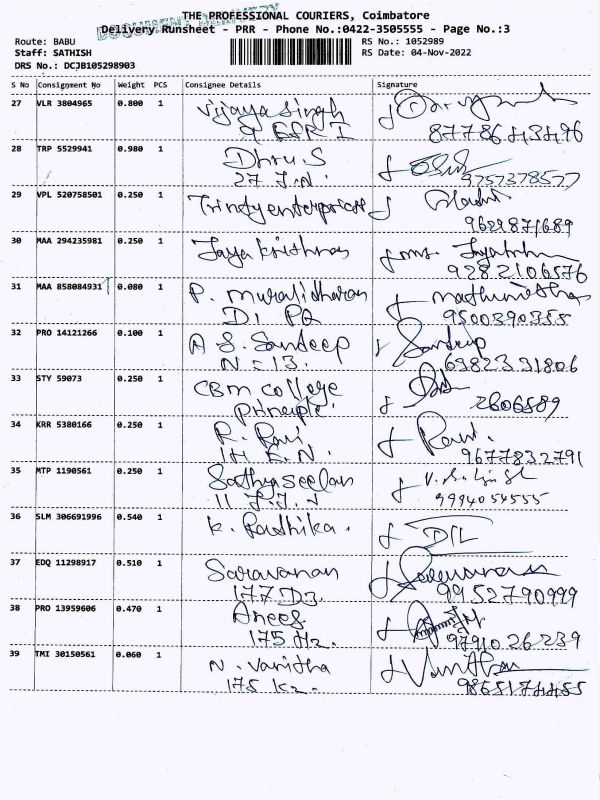 THE PROFESSIONAL COURIERS, Coimbatore
Delivery Runsheet - PRR - Phone No.:0422-3505555 - Page No.:3
Route: BABU
RS No.: 1052989
Staff: SATHISH
RS Date: 04-Nov-2022
DRS No.: DCJB105298903
S No Consignment No Weight PCS Consignee Details Signature
27 VLR 3804965 0.800 1 Vijaya Singh
28 TRP 5529941 0.980 1 Dhru.S
27 J.N. 9757378577
29 VPL 520758501 0.250 1 Trinity enterprices
9629871689
30 MAA 294235981 0.250 1 Jaya krishnan
9282106576
31 MAA 858084931 0.080 1 P. muralidharan
9500390355
32 PRO 14121266 0.100 1 A S. Sandeep Sandeep
N - 13. 6382331806
33 STY 59073 0.250 1 CBM College
Principle. 2606589
34 KRR 5380166 0.250 1 R. Ravi
9677832791
35 MTP 1190561 0.250 1 Sathyaseelan
9994054555
36 SLM 306691996 0.540 1 K. Radhika.
37 EDQ 11298917 0.510 1 Saravanan
177 D3. 9952790999
38 PRO 13959606 0.470 1 Anees
175 H2. 9791026239
39 TMI 30150561 0.060 1 N. Vanitha Vanitha
175 K2. 9865174455